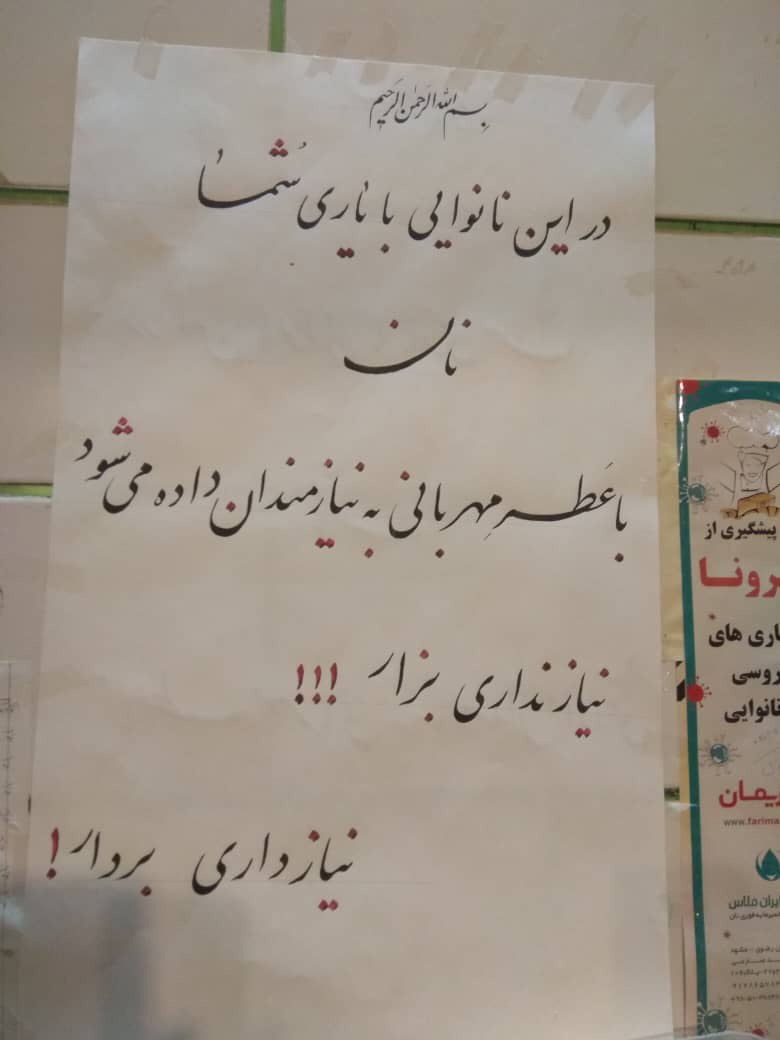 بسم الله الرحمن الرحیم
در این نانوایی با یاری شما
نان
با عَطر مِهربانی به نیازمندان داده می شود
نیاز نداری بزار !!!
نیاز داری بردار !
پیشگیری از
رونا
اری های
روسی
نانوایی
یمان
www.farima
ایران ملاس